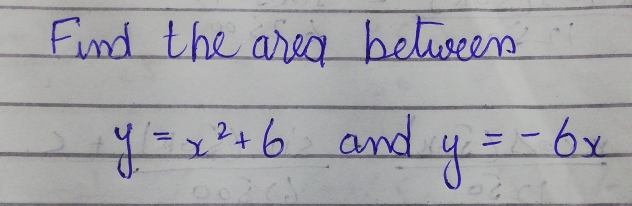 Find the area between
y = x² + 6 and y = - 6x